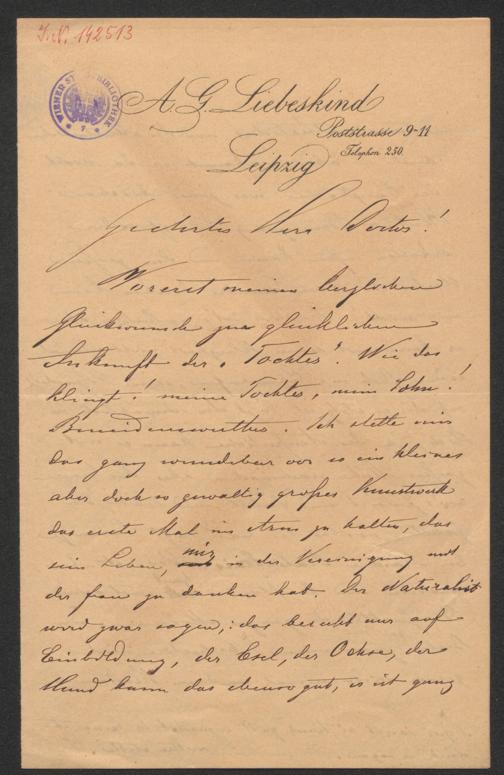 I.N. 142513
WIENER ST BIBLIOTHEK
A. G. Liebeskind
Poststrasse 9-11
Telephon 250.
Leipzig
Geehrter Herr Doctor!
Vorerst meinen herzlichen
Glückwunsch zur glücklichen
Ankunft der „Tochter". Wie das
klingt! meine Tochter, mein Sohn!
Beneidenswerther. Ich stelle mir
das ganz wunderbar vor so ein kleines
aber doch so gewaltig großes Kunstwerk
das erste Mal im Arm zu halten, das
sein Leben, mir in der Vereinigung mit
der Frau zu danken hat. Der Naturalist
wird zwar sagen: das beruht nur auf
Einbildung, der Esel, der Ochse, der
Hund kann das ebenso gut, es ist ganz